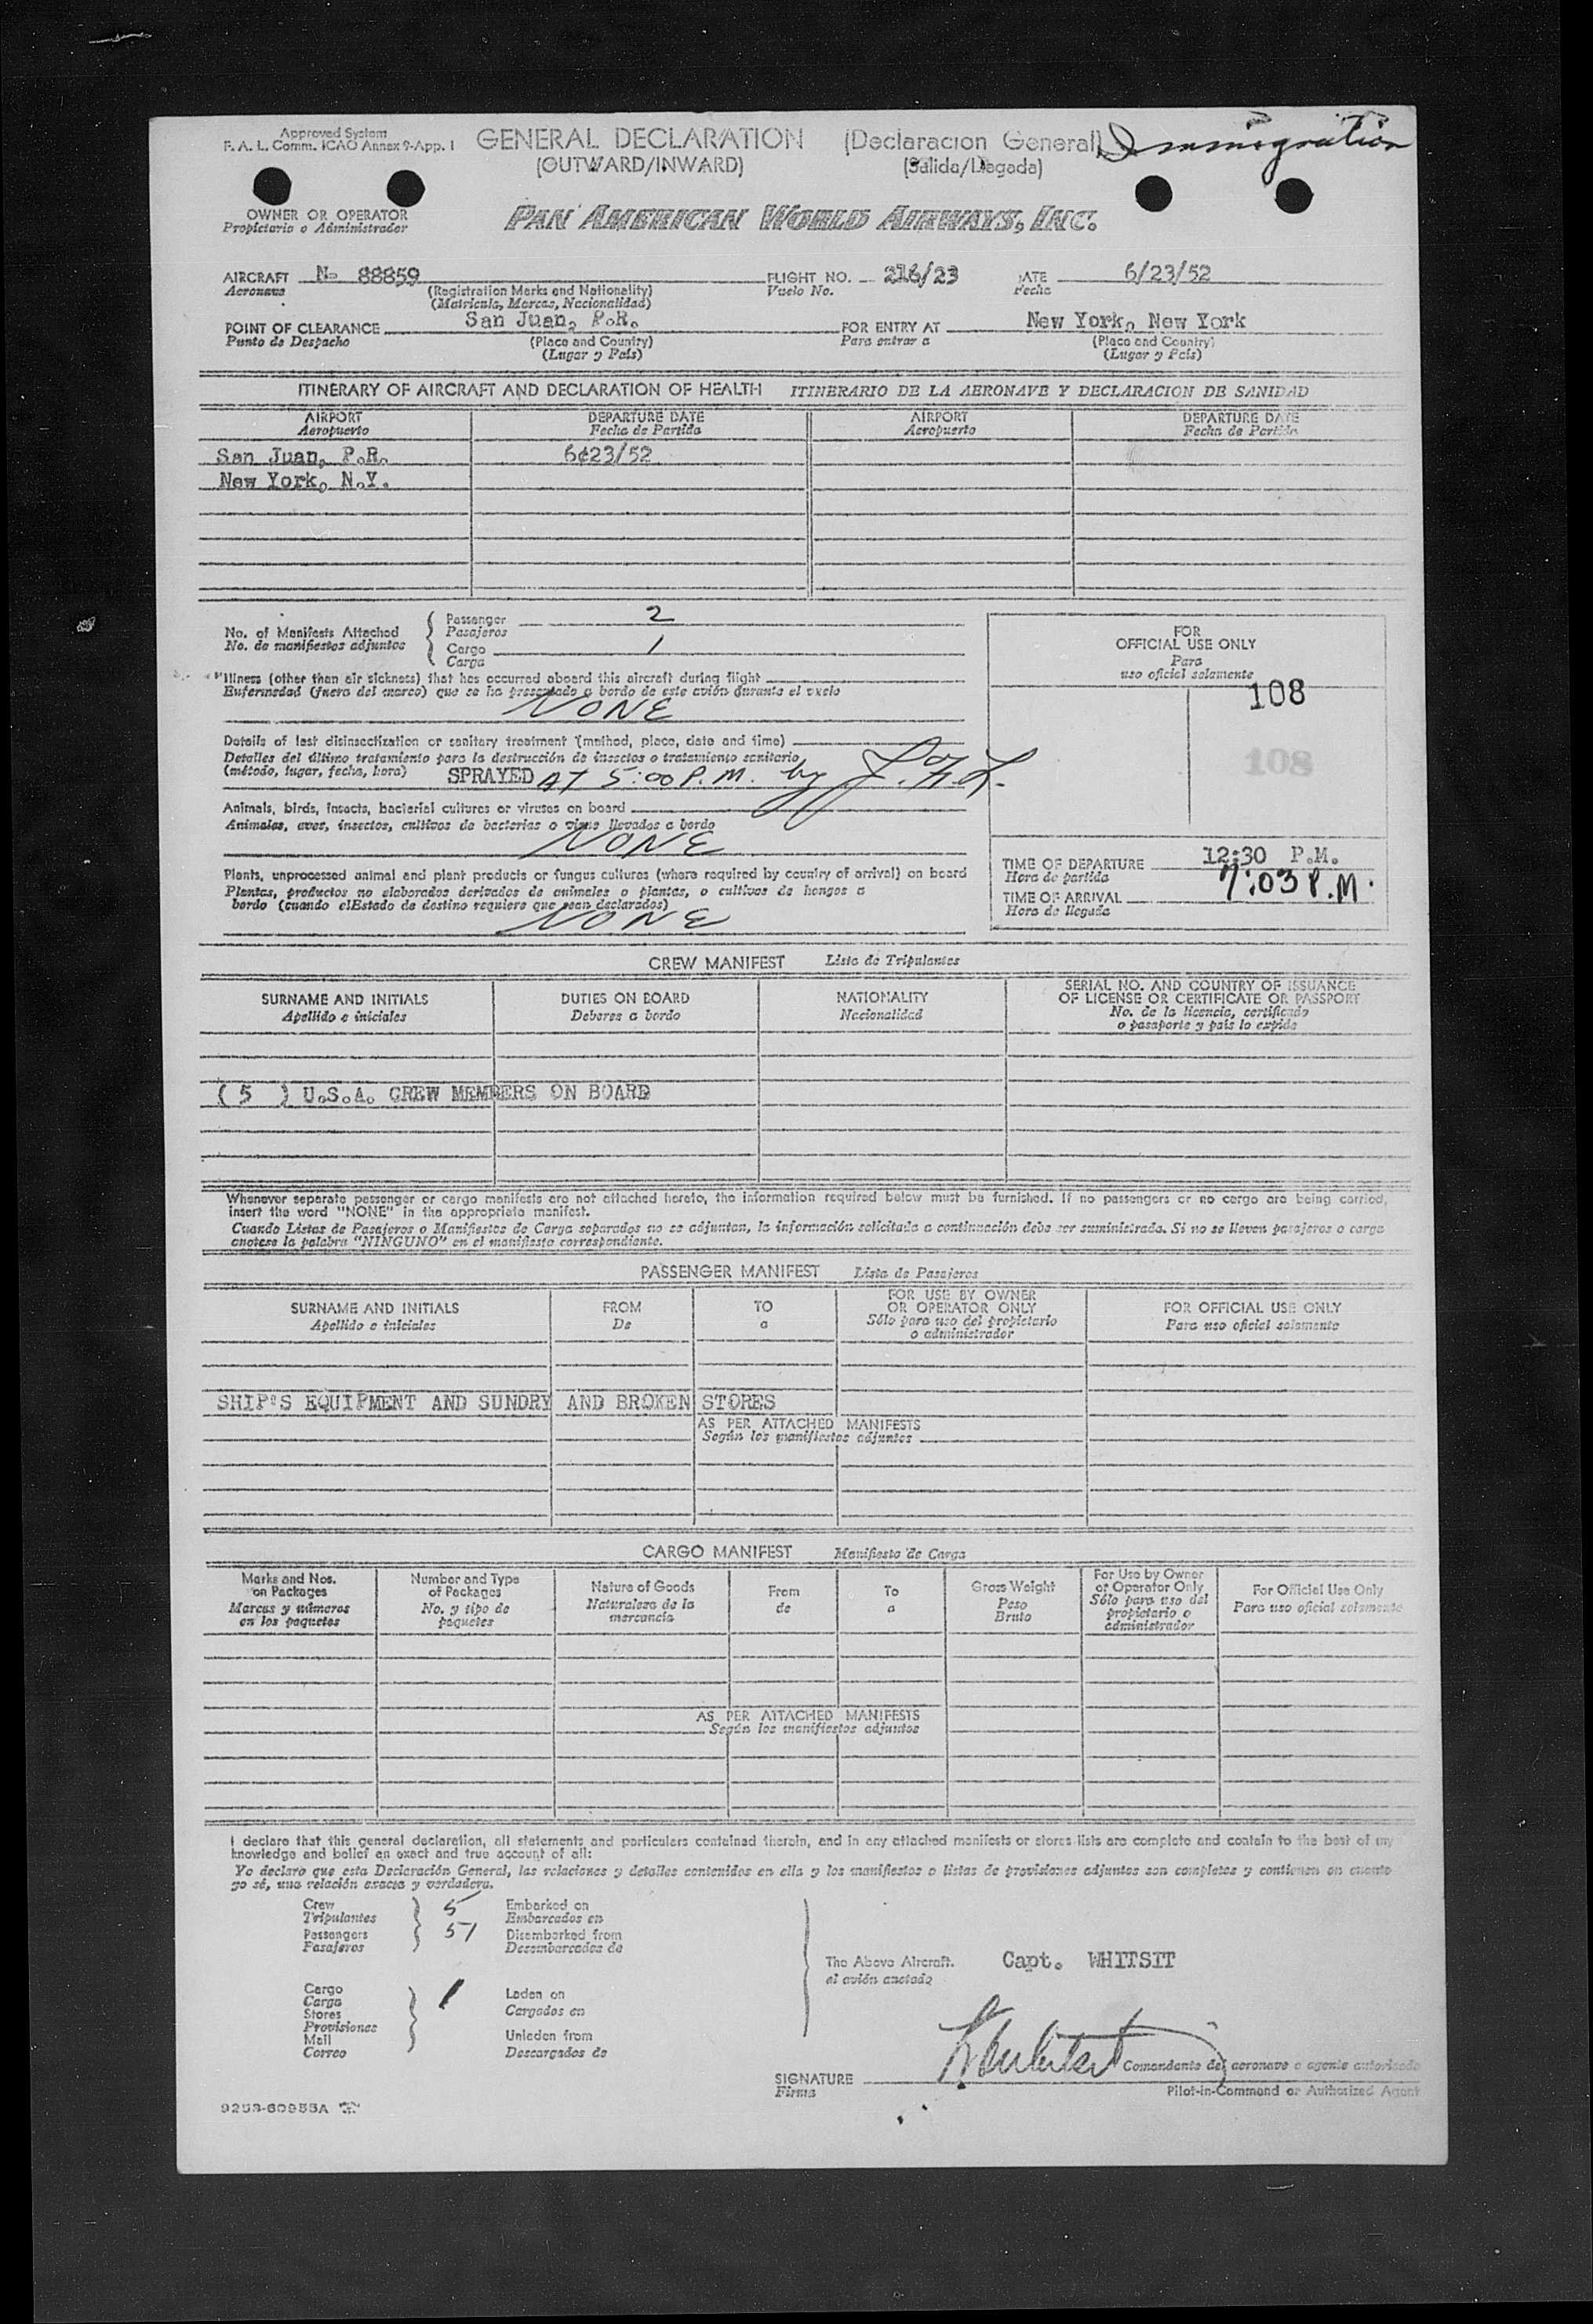 Approved System
F. A. L. Comm. ICAO Annex 9-App. 1
GENERAL DECLARATION (Declaracion General)
(OUTWARD/INWARD) (Salida/Llegada)
Immigration
OWNER OR OPERATOR
Propietario o Administrador
PAN AMERICAN WORLD AIRWAYS, INC.
AIRCRAFT N- 88859 FLIGHT NO. 216/23 DATE 6/23/52
Aeronave (Registration Marks and Nationality) Vuelo No. Fecha
(Matricula, Marcas, Nacionalidad)
POINT OF CLEARANCE San Juan, P.R. FOR ENTRY AT New York, New York
Punto de Despacho (Place and Country) Para entrar a (Place and Country)
(Lugar y País) (Lugar y País)
ITINERARY OF AIRCRAFT AND DECLARATION OF HEALTH ITINERARIO DE LA AERONAVE Y DECLARACION DE SANIDAD
AIRPORT DEPARTURE DATE AIRPORT DEPARTURE DATE
Aeropuerto Fecha de Partida Aeropuerto Fecha de Partida
San Juan, P.R. 6¢23/52
New York, N.Y.
No. of Manifests Attached
No. de manifiestos adjuntos
Passenger 2
Pasajeros
Cargo 1
Carga
FOR
OFFICIAL USE ONLY
Para
uso oficial solamente
108
108
Illness (other than air sickness) that has occurred aboard this aircraft during flight
Enfermedad (fuera del mareo) que se ha presentado a bordo de este avión durante el vuelo
NONE
Details of last disinsectization or sanitary treatment (method, place, date and time)
Detalles del último tratamiento para la destrucción de insectos o tratamiento sanitario
(método, lugar, fecha, hora) SPRAYED AT 5:00 P.M. by
Animals, birds, insects, bacterial cultures or viruses on board
Animales, aves, insectos, cultivos de bacterias o virus llevados a bordo
NONE
Plants, unprocessed animal and plant products or fungus cultures (where required by country of arrival) on board
Plantas, productos no elaborados derivados de animales o plantas, o cultivos de hongos a
bordo (cuando elEstado de destino requiere que sean declarados)
NONE
TIME OF DEPARTURE 12:30 P.M.
Hora de partida
TIME OF ARRIVAL 7:03 P.M.
Hora de llegada
CREW MANIFEST Lista de Tripulantes
SURNAME AND INITIALS DUTIES ON BOARD NATIONALITY SERIAL NO. AND COUNTRY OF ISSUANCE
OF LICENSE OR CERTIFICATE OR PASSPORT
Apellido e iniciales Deberes a bordo Nacionalidad No. de la licencia, certificado
o pasaporte y país lo expide
( 5 ) U.S.A. CREW MEMBERS ON BOARD
Whenever separate passenger or cargo manifests are not attached hereto, the information required below must be furnished. If no passengers or no cargo are being carried,
insert the word "NONE" in the appropriate manifest.
Cuando Listas de Pasajeros o Manifiestos de Carga separados no se adjunten, la información solicitada a continuación debe ser suministrada. Si no se lleven pasajeros o carga
anotese la palabra "NINGUNO" en el manifiesto correspondiente.
PASSENGER MANIFEST Lista de Pasajeros
SURNAME AND INITIALS FROM TO FOR USE BY OWNER OR OPERATOR ONLY FOR OFFICIAL USE ONLY
Apellido e iniciales De a Sólo para uso del propietario o administrador Para uso oficial solamente
SHIP'S EQUIPMENT AND SUNDRY AND BROKEN STORES
AS PER ATTACHED MANIFESTS
Según los manifiestos adjuntos
CARGO MANIFEST Manifiesto de Carga
Marks and Nos. on Packages Number and Type of Packages Nature of Goods From To Gross Weight For Use by Owner or Operator Only For Official Use Only
Marcas y números en los paquetes No. y tipo de paquetes Naturaleza de la mercancía de a Peso Bruto Sólo para uso del propietario o administrador Para uso oficial solamente
AS PER ATTACHED MANIFESTS
Según los manifiestos adjuntos
I declare that this general declaration, all statements and particulars contained therein, and in any attached manifests or stores lists are complete and contain to the best of my
knowledge and belief an exact and true account of all:
Yo declaro que esta Declaración General, las relaciones y detalles contenidos en ella y los manifiestos o listas de provisiones adjuntos son completos y contienen en cuanto
yo sé, una relación exacta y verdadera.
Crew 5 Embarked on
Tripulantes Embarcados en
Passengers 51 Disembarked from
Pasajeros Desembarcados de
The Above Aircraft. Capt. WHITSIT
el avión anotado
Cargo 1 Laden on
Carga Cargados en
Stores
Provisiones
Mail Unladen from
Correo Descargados de
Comandante del aeronave o agente autorizado
SIGNATURE
Firma
Pilot-in-Command or Authorized Agent
9253-60955A